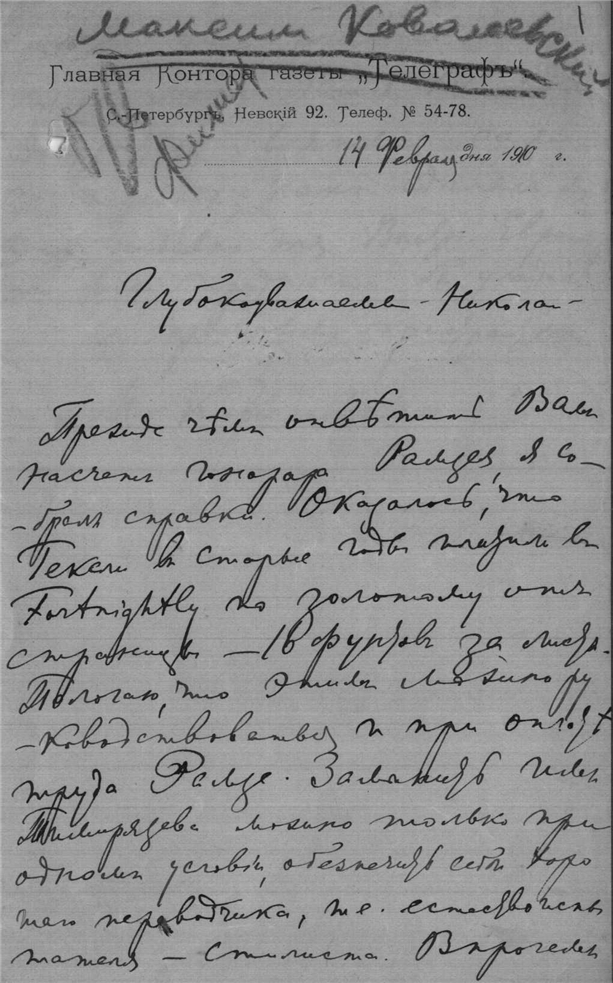 Максим Ковалевский
Главная Контора газеты „Телеграфъ“.
С.-Петербургъ, Невскій 92. Телеф. № 54-78.
14 Февраля дня 1910 г.
Глубокоуважаемый Николай
Прежде чѣмъ отвѣтить Вамъ
насчетъ гонорара Рамзея, я со-
-бралъ справки. Оказалось, что
Гексли въ старые годы платили въ
Fortnightly по золотому отъ
страницы — 16 фунтовъ за листъ.
Полагаю, что этимъ можно ру
-ководствоваться и при оплатѣ
труда Рамзе. Заманить имъ
Тимирязева можно только при
одномъ условіи, обезпечить себѣ хоро
шаго переводчика, т.е. естествоиспы
тателя — стилиста. Впрочемъ